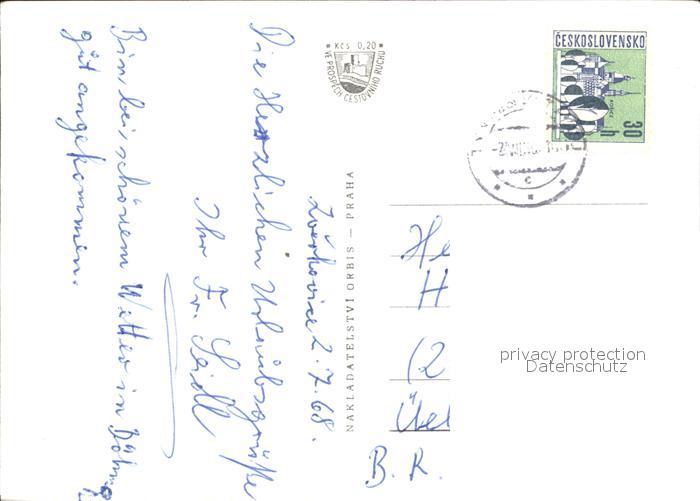 Zvěrkovice 2.7.68.
Die Herzlichen Urlaubsgrüße
Ihr Fr. Seidl
Bin bei schönem Wetter in Böhmen
gut angekommen.
* Kčs 0,20 *
VE PROSPĚCH CESTOVNÍHO RUCHU
NAKLADATELSTVÍ ORBIS — PRAHA
ČESKOSLOVENSKO
30 h
He
H
(2
Übe
B. R.
privacy protection
Datenschutz